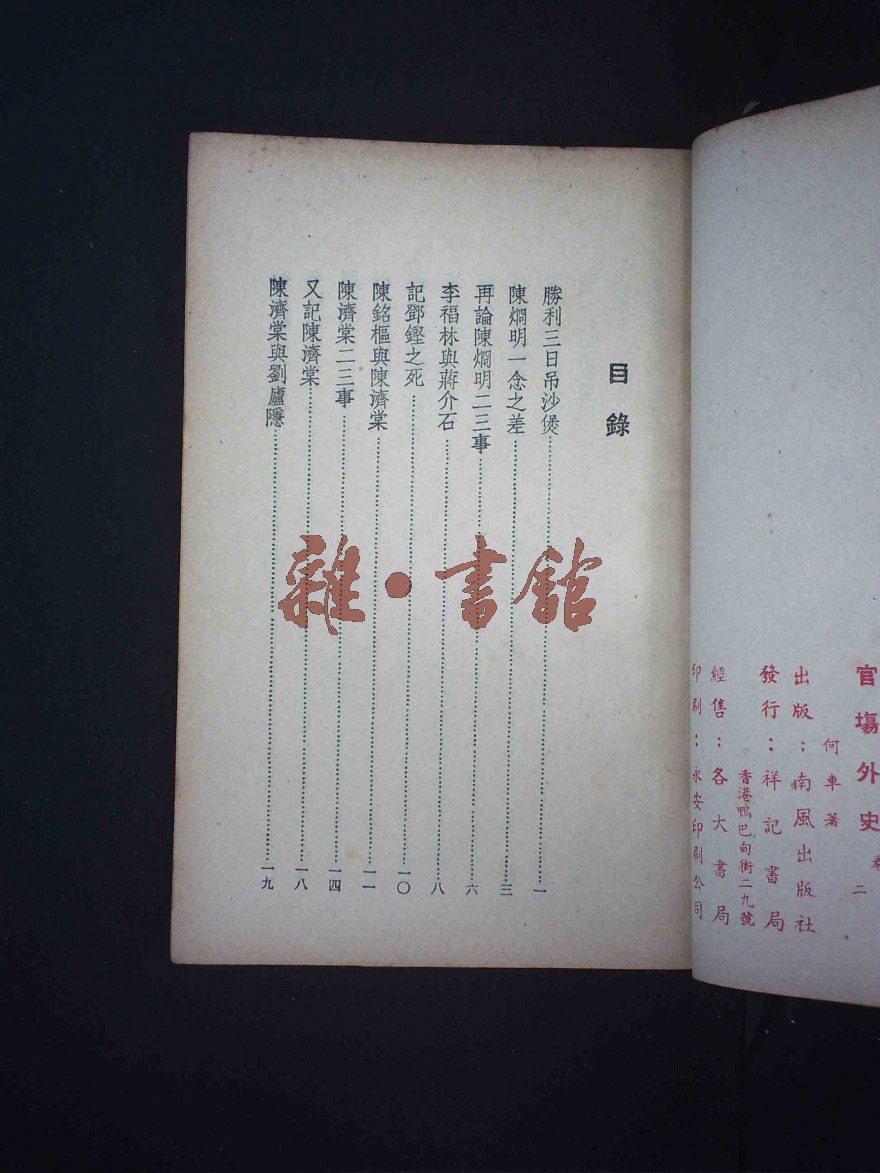 官塲外史 卷二
何車著
出版：南風出版社
發行：祥記書局
香港鴨巴甸街二九號
經售：各大書局
印刷：永安印刷公司
目錄
勝利三日吊沙煲…一
陳烱明一念之差…三
再論陳烱明二三事…六
李福林與蔣介石…八
記鄧鏗之死…一〇
陳銘樞與陳濟棠…一一
陳濟棠二三事…一四
又記陳濟棠…一八
陳濟棠與劉廬隱…一九
雜·書館